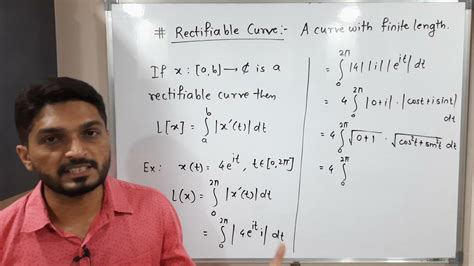 # Rectifiable Curve:- A curve with finite length.
If x : [a,b] → ₵ is a
rectifiable curve then
L[x] = ∫ₐᵇ |x'(t)| dt
Ex: x(t) = 4eⁱᵗ, t∈[0,2π]
L(x) = ∫₀²π |x'(t)| dt
= ∫₀²π |4eⁱᵗ i| dt
= ∫₀²π |4| |i| |eⁱᵗ| dt
= 4 ∫₀²π |0+i| · |cost+isint| dt
= 4 ∫₀²π √0+1 · √cos²t+sin²t dt
= 4 ∫₀²π